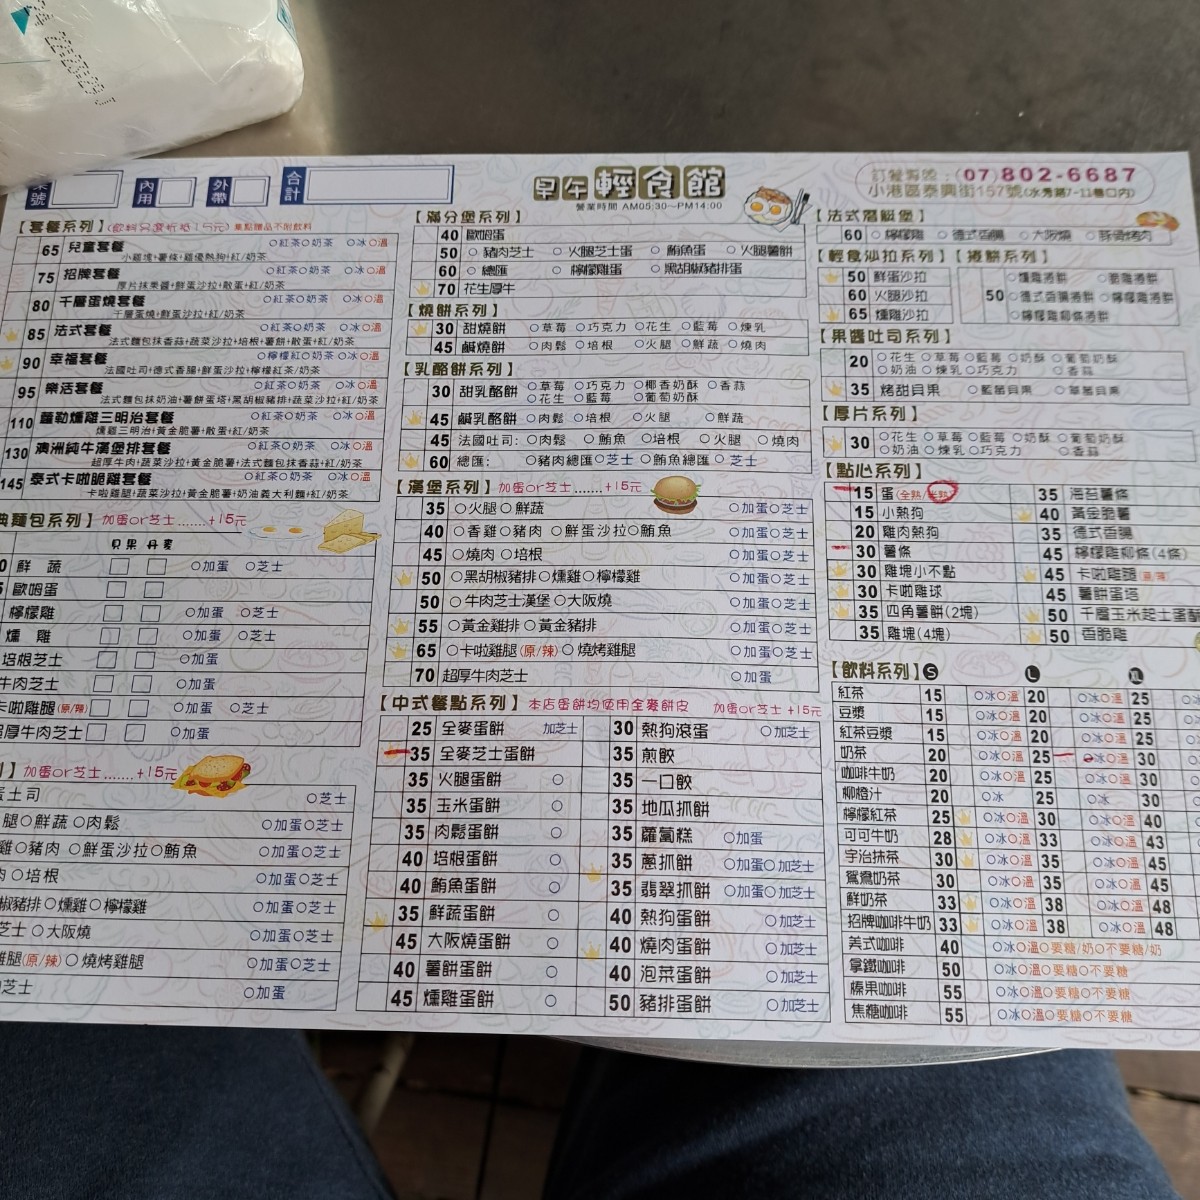 號
內用
外帶
合計
早午輕食館
營業時間 AM05:30~PM14:00
訂餐專線:(07)802-6687
小港區泰興街157號(水秀路7-11巷口內)
【套餐系列】
集點贈品不附飲料
65 兒童套餐 ○紅茶○奶茶 ○冰○溫
小雞塊+薯條+雞優熱狗+紅/奶茶
75 招牌套餐 ○紅茶○奶茶 ○冰○溫
厚片抹果醬+鮮蛋沙拉+散蛋+紅/奶茶
80 千層蛋燒套餐 ○紅茶○奶茶 ○冰○溫
千層蛋燒+鮮蛋沙拉+紅/奶茶
85 法式套餐 ○紅茶○奶茶 ○冰○溫
法式麵包抹香蒜+蔬菜沙拉+培根+薯餅+散蛋+紅/奶茶
90 幸福套餐 ○檸檬紅○奶茶 ○冰○溫
法國吐司+德式香腸+鮮蛋沙拉+檸檬紅/奶茶
95 樂活套餐 ○紅茶○奶茶 ○冰○溫
法式麵包抹奶油+薯餅蛋塔+黑胡椒豬排+蔬菜沙拉+紅/奶茶
110 蘿勒燻雞三明治套餐 ○紅茶○奶茶 ○冰○溫
燻雞三明治+黃金脆薯+散蛋+紅/奶茶
130 澳洲純牛漢堡排套餐 ○紅茶○奶茶 ○冰○溫
超厚牛肉+蔬菜沙拉+黃金脆薯+法式麵包抹香蒜+紅/奶茶
145 泰式卡啦脆雞套餐 ○紅茶○奶茶 ○冰○溫
卡啦雞腿+蔬菜沙拉+黃金脆薯+奶油義大利麵+紅/奶茶
典麵包系列】加蛋or芝士.......+15元
貝果 丹麥
鮮蔬 ○加蛋 ○芝士
歐姆蛋
檸檬雞 ○加蛋 ○芝士
燻雞 ○加蛋 ○芝士
培根芝士 ○加蛋
牛肉芝士 ○加蛋
卡啦雞腿(原/辣) ○加蛋 ○芝士
超厚牛肉芝士 ○加蛋
】加蛋or芝士.......+15元
蛋土司 ○芝士
腿○鮮蔬 ○肉鬆 ○加蛋○芝士
雞○豬肉 ○鮮蛋沙拉○鮪魚 ○加蛋○芝士
肉○培根 ○加蛋○芝士
椒豬排○燻雞○檸檬雞 ○加蛋○芝士
芝士 ○大阪燒 ○加蛋○芝士
雞腿(原/辣)○燒烤雞腿 ○加蛋○芝士
芝士 ○加蛋
【滿分堡系列】
40 歐姆蛋
50 ○豬肉芝士 ○火腿芝士蛋 ○鮪魚蛋 ○火腿薯餅
60 ○總匯 ○檸檬雞蛋 ○黑胡椒豬排蛋
70 花生厚牛
【燒餅系列】
30 甜燒餅 ○草莓 ○巧克力 ○花生 ○藍莓 ○煉乳
45 鹹燒餅 ○肉鬆 ○培根 ○火腿 ○鮮蔬 ○燒肉
【乳酪餅系列】
30 甜乳酪餅 ○草莓 ○巧克力 ○椰香奶酥 ○香蒜
○花生 ○藍莓 ○葡萄奶酥
45 鹹乳酪餅 ○肉鬆 ○培根 ○火腿 ○鮮蔬
45 法國吐司: ○肉鬆 ○鮪魚 ○培根 ○火腿 ○燒肉
60 總匯: ○豬肉總匯○芝士 ○鮪魚總匯○芝士
【漢堡系列】加蛋or芝士.......+15元
35 ○火腿○鮮蔬 ○加蛋○芝士
40 ○香雞○豬肉 ○鮮蛋沙拉○鮪魚 ○加蛋○芝士
45 ○燒肉○培根 ○加蛋○芝士
50 ○黑胡椒豬排○燻雞○檸檬雞 ○加蛋○芝士
50 ○牛肉芝士漢堡○大阪燒 ○加蛋○芝士
55 ○黃金雞排○黃金豬排 ○加蛋○芝士
65 ○卡啦雞腿(原/辣)○燒烤雞腿 ○加蛋○芝士
70 超厚牛肉芝士 ○加蛋
【中式餐點系列】本店蛋餅均使用全麥餅皮 加蛋or芝士 +15元
25 全麥蛋餅 加芝士
35 全麥芝士蛋餅
35 火腿蛋餅 ○
35 玉米蛋餅 ○
35 肉鬆蛋餅 ○
40 培根蛋餅 ○
40 鮪魚蛋餅 ○
35 鮮蔬蛋餅 ○
45 大阪燒蛋餅 ○
40 薯餅蛋餅 ○
45 燻雞蛋餅 ○
30 熱狗滾蛋 ○加芝士
35 煎餃
35 一口餃
35 地瓜抓餅
35 蘿蔔糕 ○加蛋
35 蔥抓餅 ○加蛋○加芝士
35 翡翠抓餅 ○加蛋○加芝士
40 熱狗蛋餅 ○加芝士
40 燒肉蛋餅 ○加芝士
40 泡菜蛋餅 ○加芝士
50 豬排蛋餅 ○加芝士
【法式潛艇堡】
60 ○檸檬雞 ○德式香腸 ○大阪燒 ○豚骨烤肉
【輕食沙拉系列】
50 鮮蛋沙拉
60 火腿沙拉
65 燻雞沙拉
【捲餅系列】
50 ○燻雞捲餅 ○脆雞捲餅
○德式香腸捲餅 ○檸檬雞捲餅
○檸檬雞柳條捲餅
【果醬吐司系列】
20 ○花生 ○草莓○藍莓 ○奶酥 ○葡萄奶酥
○奶油 ○煉乳○巧克力 ○香蒜
35 烤甜貝果 ○藍莓貝果 ○草莓貝果
【厚片系列】
30 ○花生 ○草莓 ○藍莓 ○奶酥 ○葡萄奶酥
○奶油 ○煉乳 ○巧克力 ○香蒜
【點心系列】
15 蛋(全熟/半熟)
15 小熱狗
20 雞肉熱狗
30 薯條
30 雞塊小不點
30 卡啦雞球
35 四角薯餅(2塊)
35 雞塊(4塊)
35 海苔薯條
40 黃金脆薯
35 德式香腸
45 檸檬雞柳條(4條)
45 卡啦雞腿(原/辣)
45 薯餅蛋塔
50 千層玉米起士蛋
50 香脆雞
【飲料系列】 S L XL
紅茶 15 ○冰○溫 20 ○冰○溫 25
豆漿 15 ○冰○溫 20 ○冰○溫 25
紅茶豆漿 15 ○冰○溫 20 ○冰○溫 25
奶茶 20 ○冰○溫 25 ○冰○溫 30
咖啡牛奶 20 ○冰○溫 25 ○冰○溫 30
柳橙汁 20 ○冰 25 ○冰 30
檸檬紅茶 25 ○冰○溫 30 ○冰○溫 40
可可牛奶 28 ○冰○溫 33 ○冰○溫 43
宇治抹茶 30 ○冰○溫 35 ○冰○溫 45
鴛鴦奶茶 30 ○冰○溫 35 ○冰○溫 45
鮮奶茶 33 ○冰○溫 38 ○冰○溫 48
招牌咖啡牛奶 33 ○冰○溫 38 ○冰○溫 48
美式咖啡 40 ○冰○溫○要糖/奶○不要糖/奶
拿鐵咖啡 50 ○冰○溫○要糖○不要糖
榛果咖啡 55 ○冰○溫○要糖○不要糖
焦糖咖啡 55 ○冰○溫○要糖○不要糖